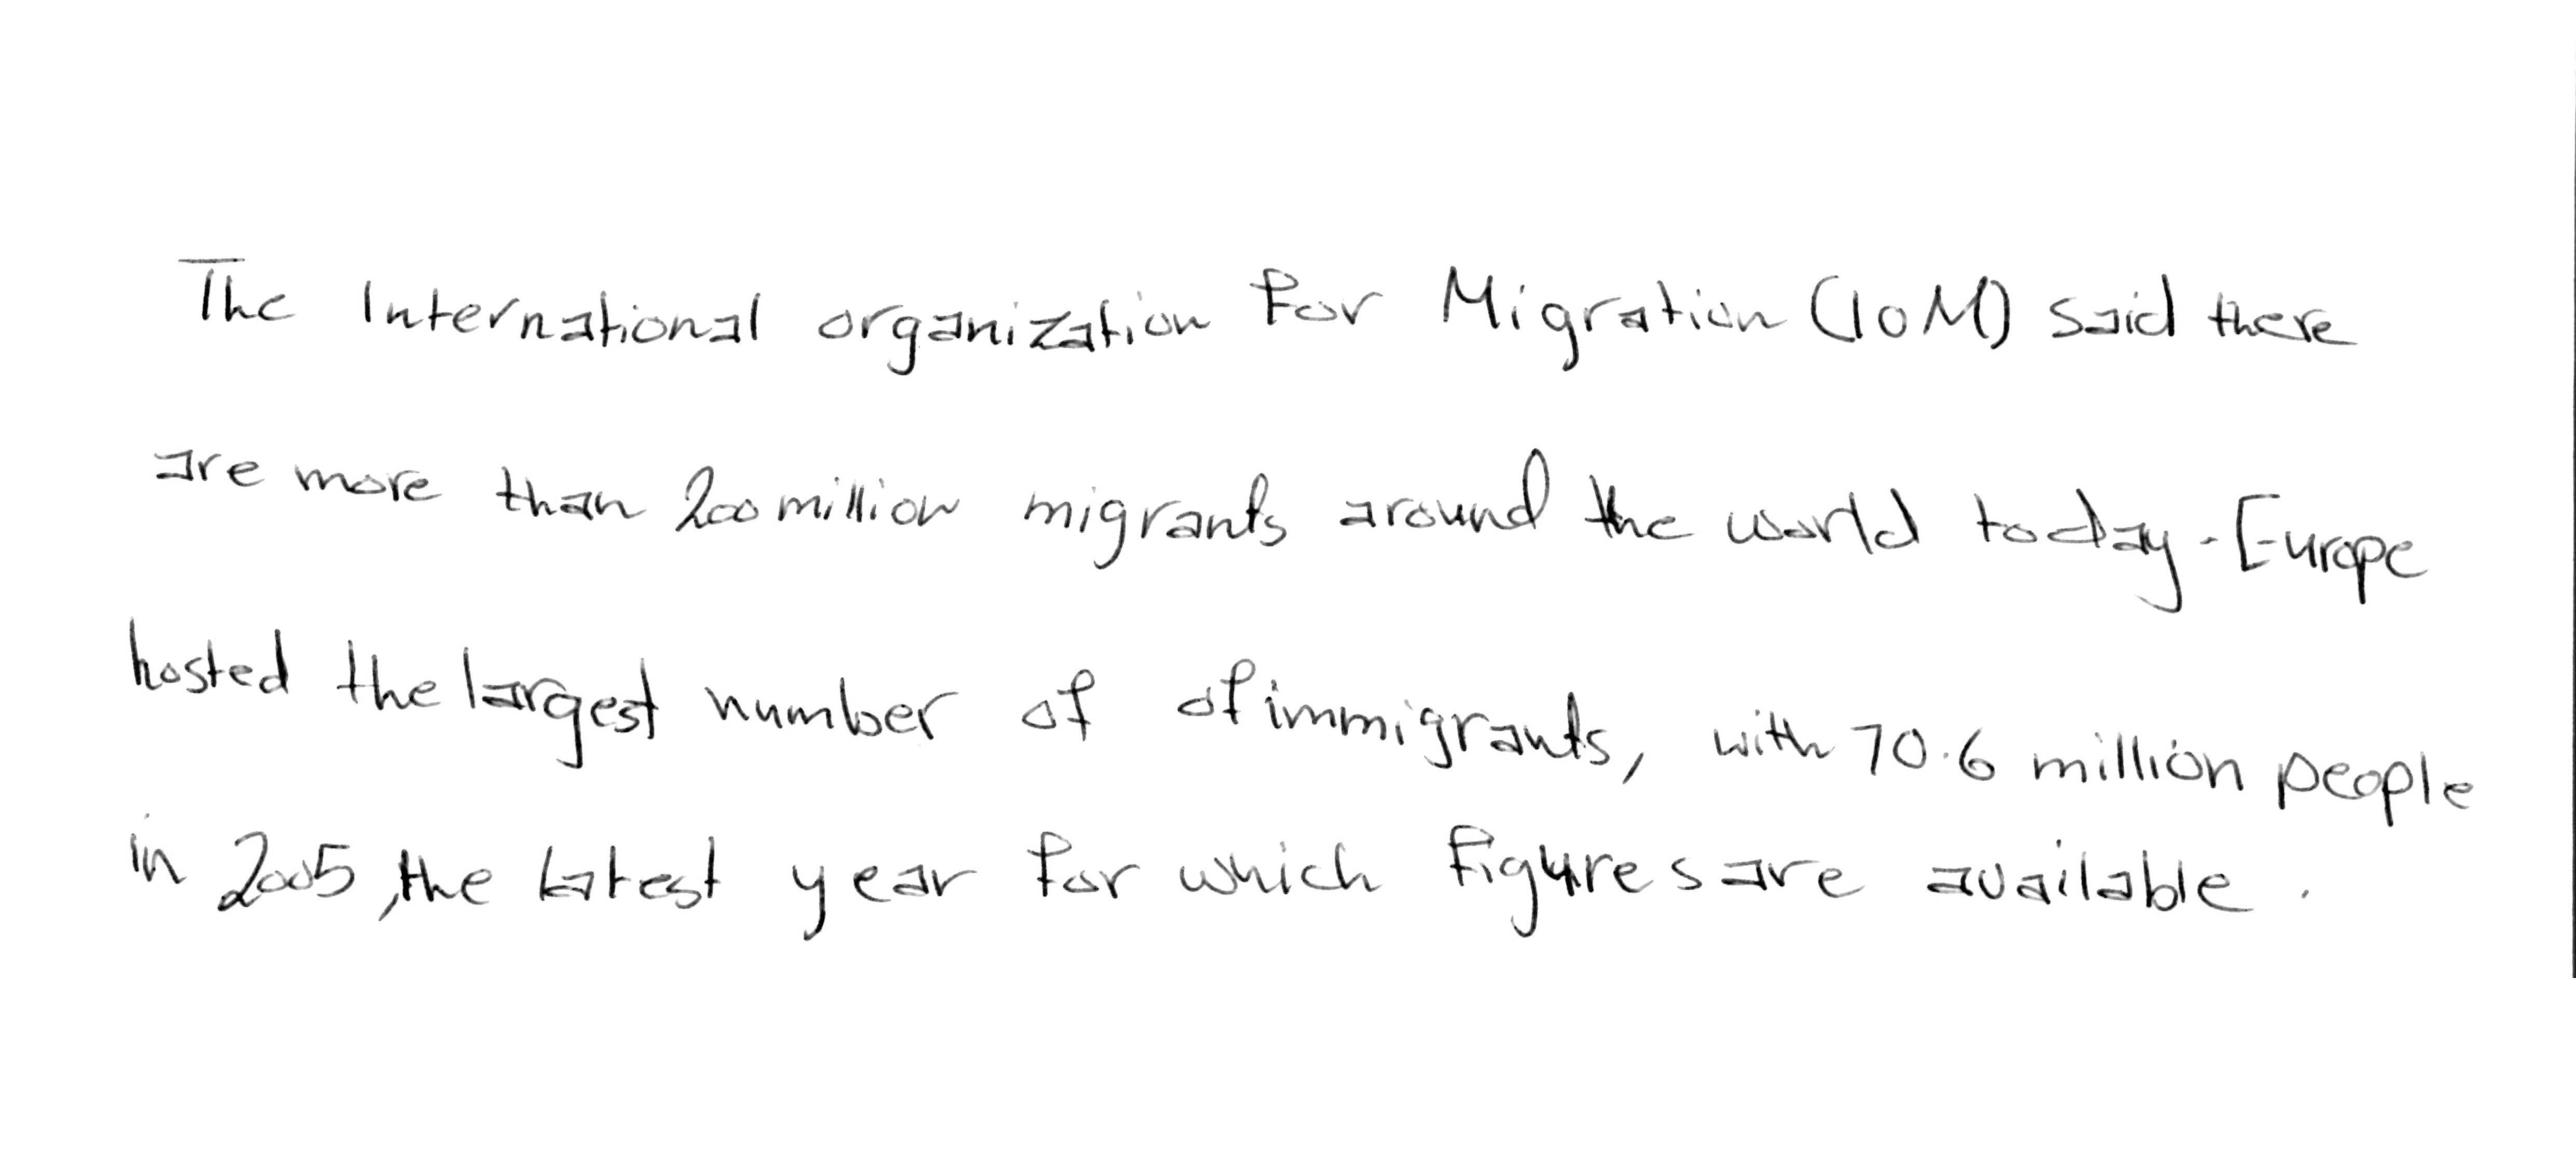 The International organization for Migration (IOM) said there
are more than 200 million migrants around the world today. Europe
hosted the largest number of of immigrants, with 70.6 million people
in 2005, the latest year for which figures are available.